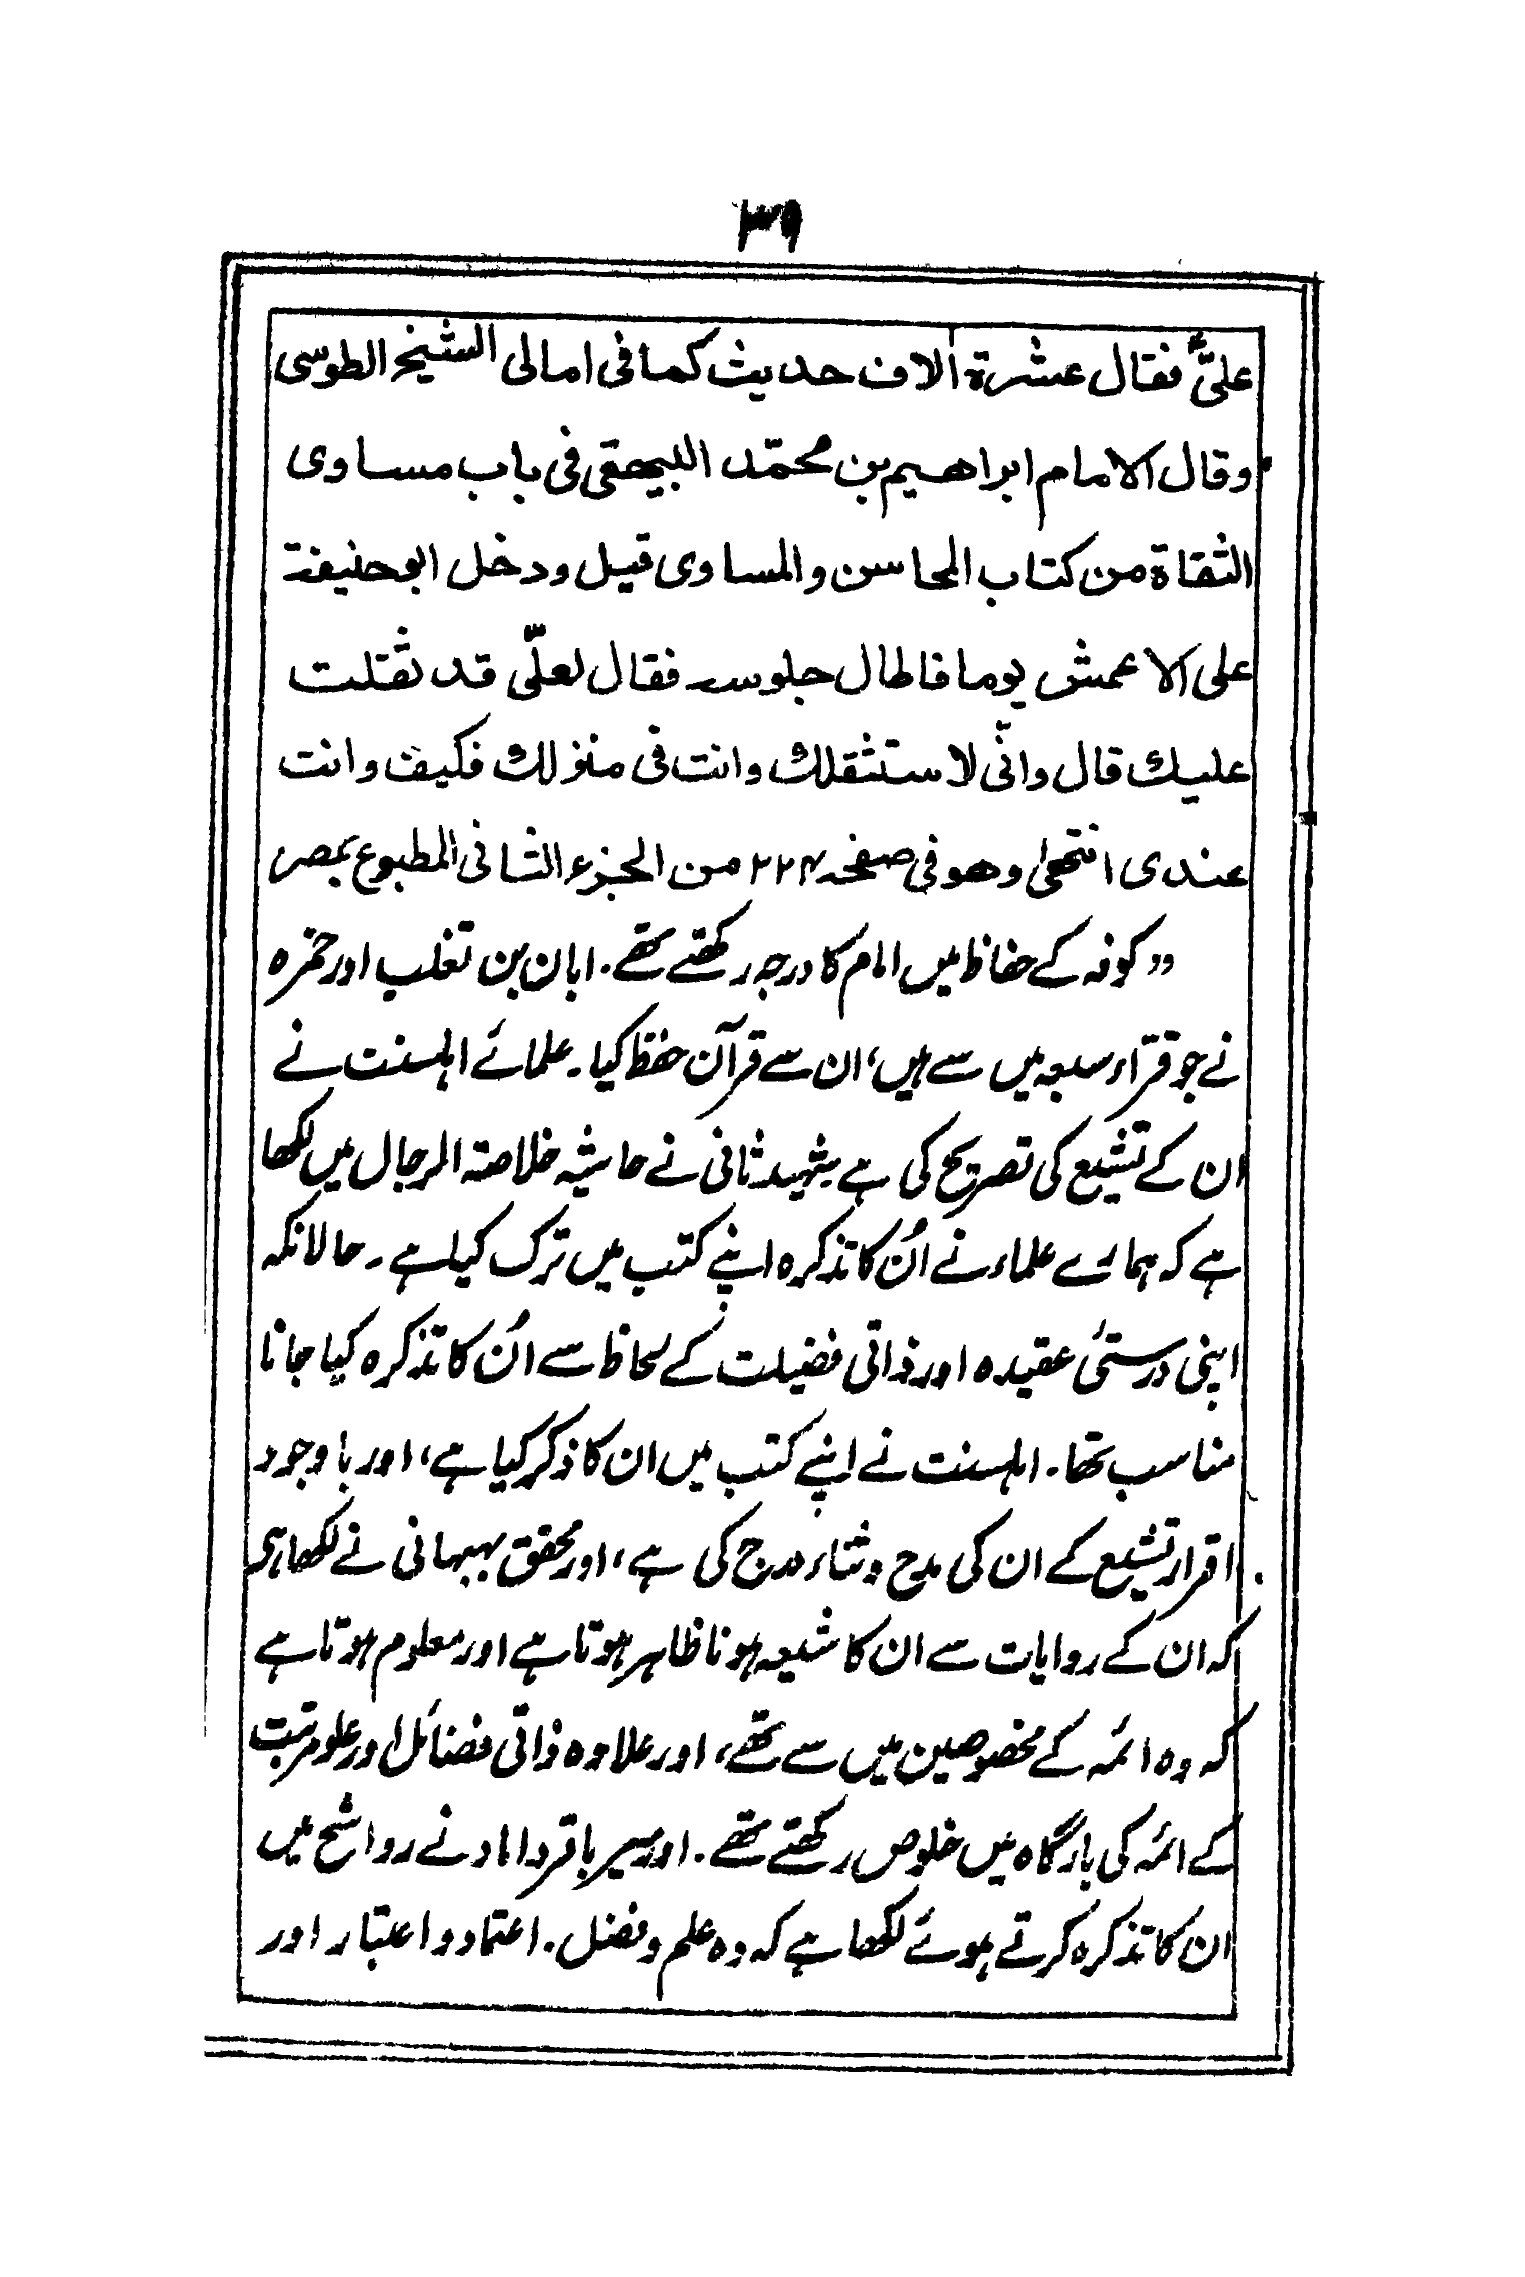 ۳۹
علیؑ فقال عشرة الاف حدیث کما فی امالی الشیخ الطوسی
وقال الامام ابراھیم بن محمّد البیھقی فی باب مساوی
الثقاة من کتاب المحاسن والمساوی قیل ودخل ابوحنیفة
علی الاعمش یوما فاطال جلوسہ فقال لعلّی قد ثقلت
علیک قال وانّی لاستثقلک وانت فی منزلک فکیف وانت
عندی انتھی وھو فی صفحہ ۲۲۴ من الجزء الثانی المطبوع بمصر
"کوفہ کے حفاظ میں امام کا درجہ رکھتے تھے۔ ابان بن تغلب اور حمزہ
نے جو قرّاء سبعہ میں سے ہیں، ان سے قرآن حفظ کیا۔ علمائے اہلسنت نے
ان کے تشیع کی تصریح کی ہے شہید ثانی نے حاشیہ خلاصۃ الرجال میں لکھا
ہے کہ ہمارے علماء نے اُن کا تذکرہ اپنے کتب میں ترک کیا ہے۔ حالانکہ
اپنی درستئ عقیدہ اور ذاتی فضیلت کے لحاظ سے اُن کا تذکرہ کیا جانا
مناسب تھا۔ اہلسنت نے اپنے کتب میں ان کا ذکر کیا ہے، اور باوجود
اقرار تشیع کے ان کی مدح وثناء درج کی ہے، اور محقق بہبہانی نے لکھا ہے
کہ ان کے روایات سے ان کا شیعہ ہونا ظاہر ہوتا ہے اور معلوم ہوتا ہے
کہ وہ ائمہ کے مخصوصین میں سے تھے، اور علاوہ ذاتی فضائل اور علو مرتبت
کے ائمہ کی بارگاہ میں خلوص رکھتے تھے۔ اور میر باقر داماد نے رواشح میں
ان کا تذکرہ کرتے ہوئے لکھا ہے کہ وہ علم وفضل۔ اعتماد و اعتبار اور